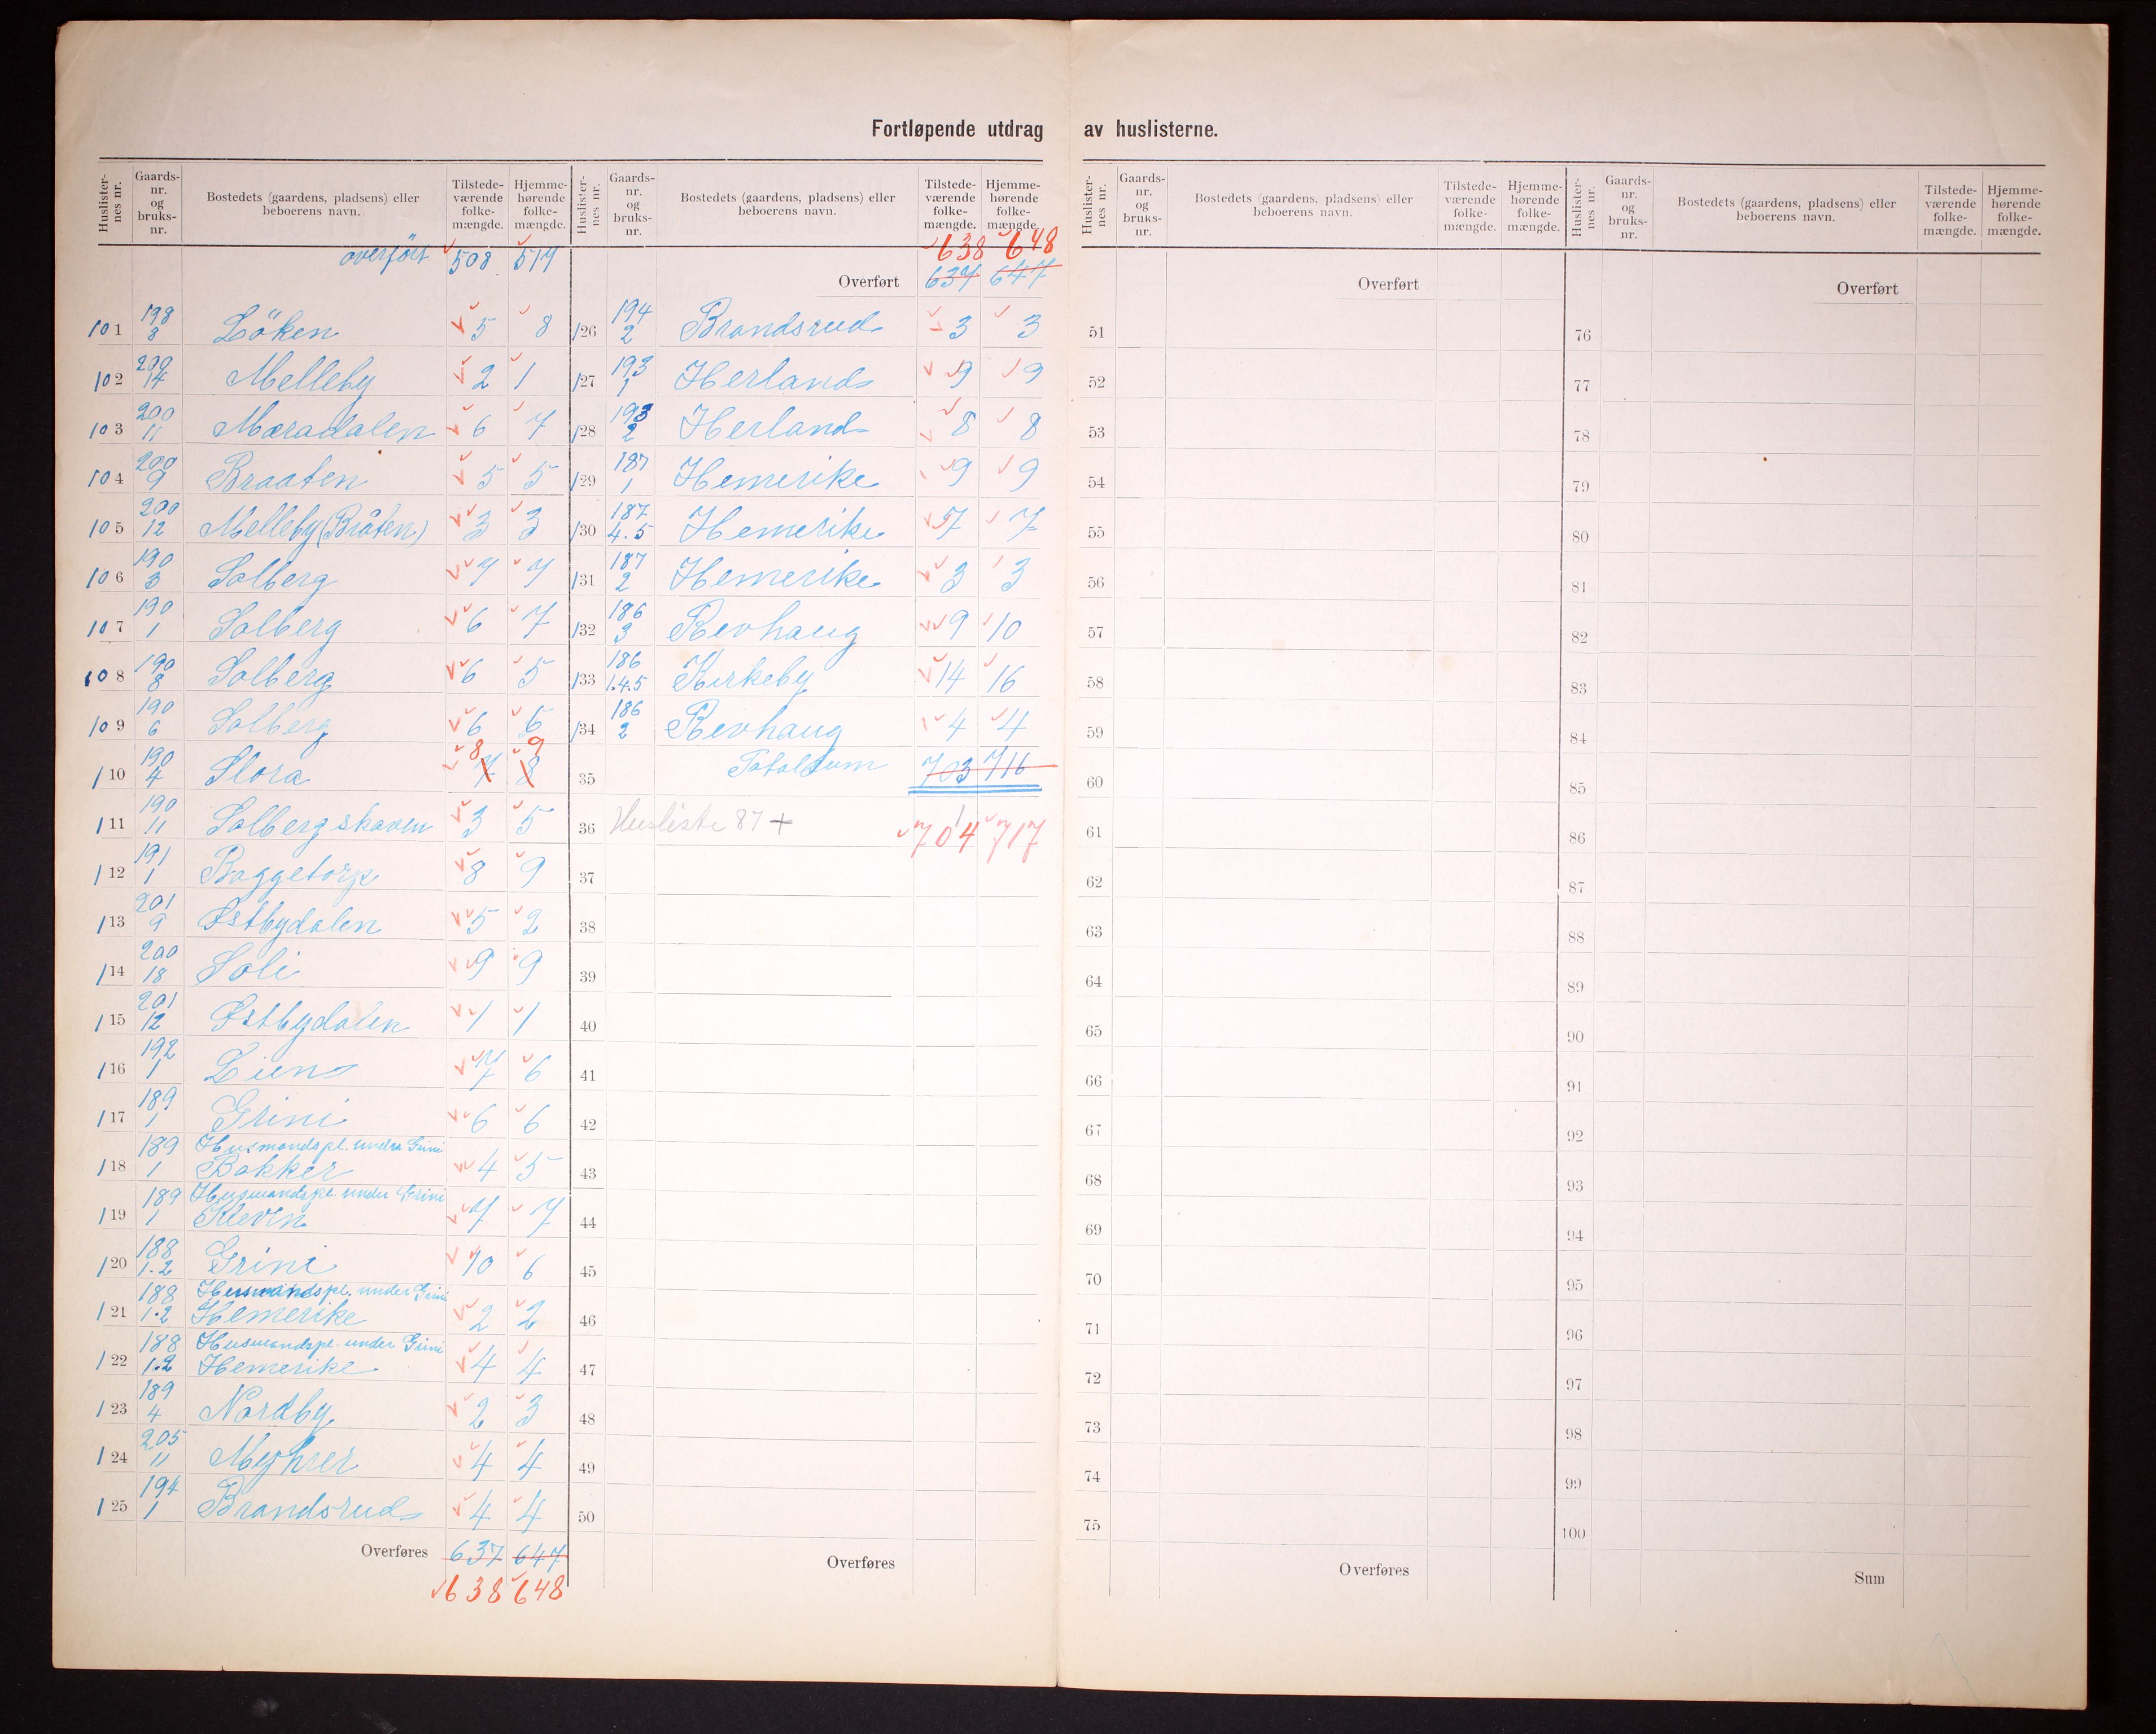 Fortløpende utdrag av huslisterne.
Huslister-nes nr. Gaards-nr. og bruks-nr. Bostedets (gaardens, pladsens) eller beboerens navn. Tilstede-værende folke-mængde. Hjemme-hørende folke-mængde.
overført 508 517
101 198 8 Löken 5 8
102 200 14 Melleby 2 1
103 200 11 Mæradalen 6 7
104 200 9 Braaten 5 5
105 200 12 Melleby (Bråten) 3 3
106 190 3 Solberg 7 7
107 190 1 Solberg 6 7
108 190 8 Solberg 6 5
109 190 6 Solberg 6 6
8 9
110 190 4 Slora 7 8
111 190 11 Solbergskaven 3 5
112 191 1 Baggetorp 8 9
113 201 9 Østbydalen 5 2
114 200 18 Soli 9 9
115 201 12 Østbydalen 1 1
116 192 1 Lien 7 6
117 189 1 Grini 6 6
118 189 1 Husmandspl. under Grini
Bakker 4 5
119 189 1 Husmandspl. under Grini
Kleven 7 7
120 188 1.2 Grini 10 6
121 188 1.2 Husmandspl. under Grini
Hemerike 2 2
122 188 1.2 Husmandspl. under Grini
Hemerike 4 4
123 189 4 Nordby 2 3
124 205 11 Myhrer 4 4
125 194 1 Brandsrud 4 4
Overføres 637 647
638 648
Huslister-nes nr. Gaards-nr. og bruks-nr. Bostedets (gaardens, pladsens) eller beboerens navn. Tilstede-værende folke-mængde. Hjemme-hørende folke-mængde.
638 648
Overført 637 647
126 194 2 Brandsrud 3 3
127 193 1 Herland 9 9
128 193 2 Herland 8 8
129 187 1 Hemerike 9 9
130 187 4.5 Hemerike 7 7
131 187 2 Hemerike 3 3
132 186 3 Revhaug 9 10
133 186 1.4.5 Kirkeby 14 16
134 186 2 Revhaug 4 4
35 Totalsum 703 716
36 Husliste 87 + 704 717
37
38
39
40
41
42
43
44
45
46
47
48
49
50
Overføres
Huslister-nes nr. Gaards-nr. og bruks-nr. Bostedets (gaardens, pladsens) eller beboerens navn. Tilstede-værende folke-mængde. Hjemme-hørende folke-mængde.
Overført
51
52
53
54
55
56
57
58
59
60
61
62
63
64
65
66
67
68
69
70
71
72
73
74
75
Overføres
Huslister-nes nr. Gaards-nr. og bruks-nr. Bostedets (gaardens, pladsens) eller beboerens navn. Tilstede-værende folke-mængde. Hjemme-hørende folke-mængde.
Overført
76
77
78
79
80
81
82
83
84
85
86
87
88
89
90
91
92
93
94
95
96
97
98
99
100
Sum